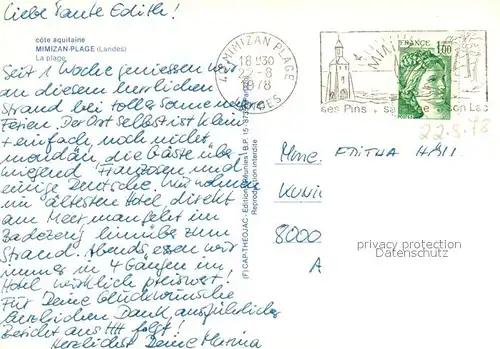 Liebe Tante Edith!
côte aquitaine
MIMIZAN-PLAGE (Landes)
La plage
Seit 1 Woche geniessen wir
an diesem herrlichen
Strand bei tollem Sommerwetter
Ferien. Der Ort selbst ist klein
+ einfach, noch nicht
mondän, die Gäste über-
wiegend Franzosen und
einige Deutsche. Wir wohnen
im ältesten Hotel direkt
am Meer, man fährt im
Badezeug hinüber zum
Strand. Abends essen wir
immer in 4 Gängen im
Hotel wirklich preiswert!
Für Deine Glückwünsche
herzlichen Dank, ausführlicher
Bericht aus HH folgt!
Herzlichst Deine Marina
40 MIMIZAN PLAGE
18 H30
22-8
1978
LANDES
MIMIZAN
ses Pins . sa . son Lac
1,00
22.8.78
(F) CAP-THEOJAC - Editions Réunies - B.P. 15
Reproduction interdite
Mme. EDITHA
8000
A
privacy protection
AnsichtskartenVersand.com